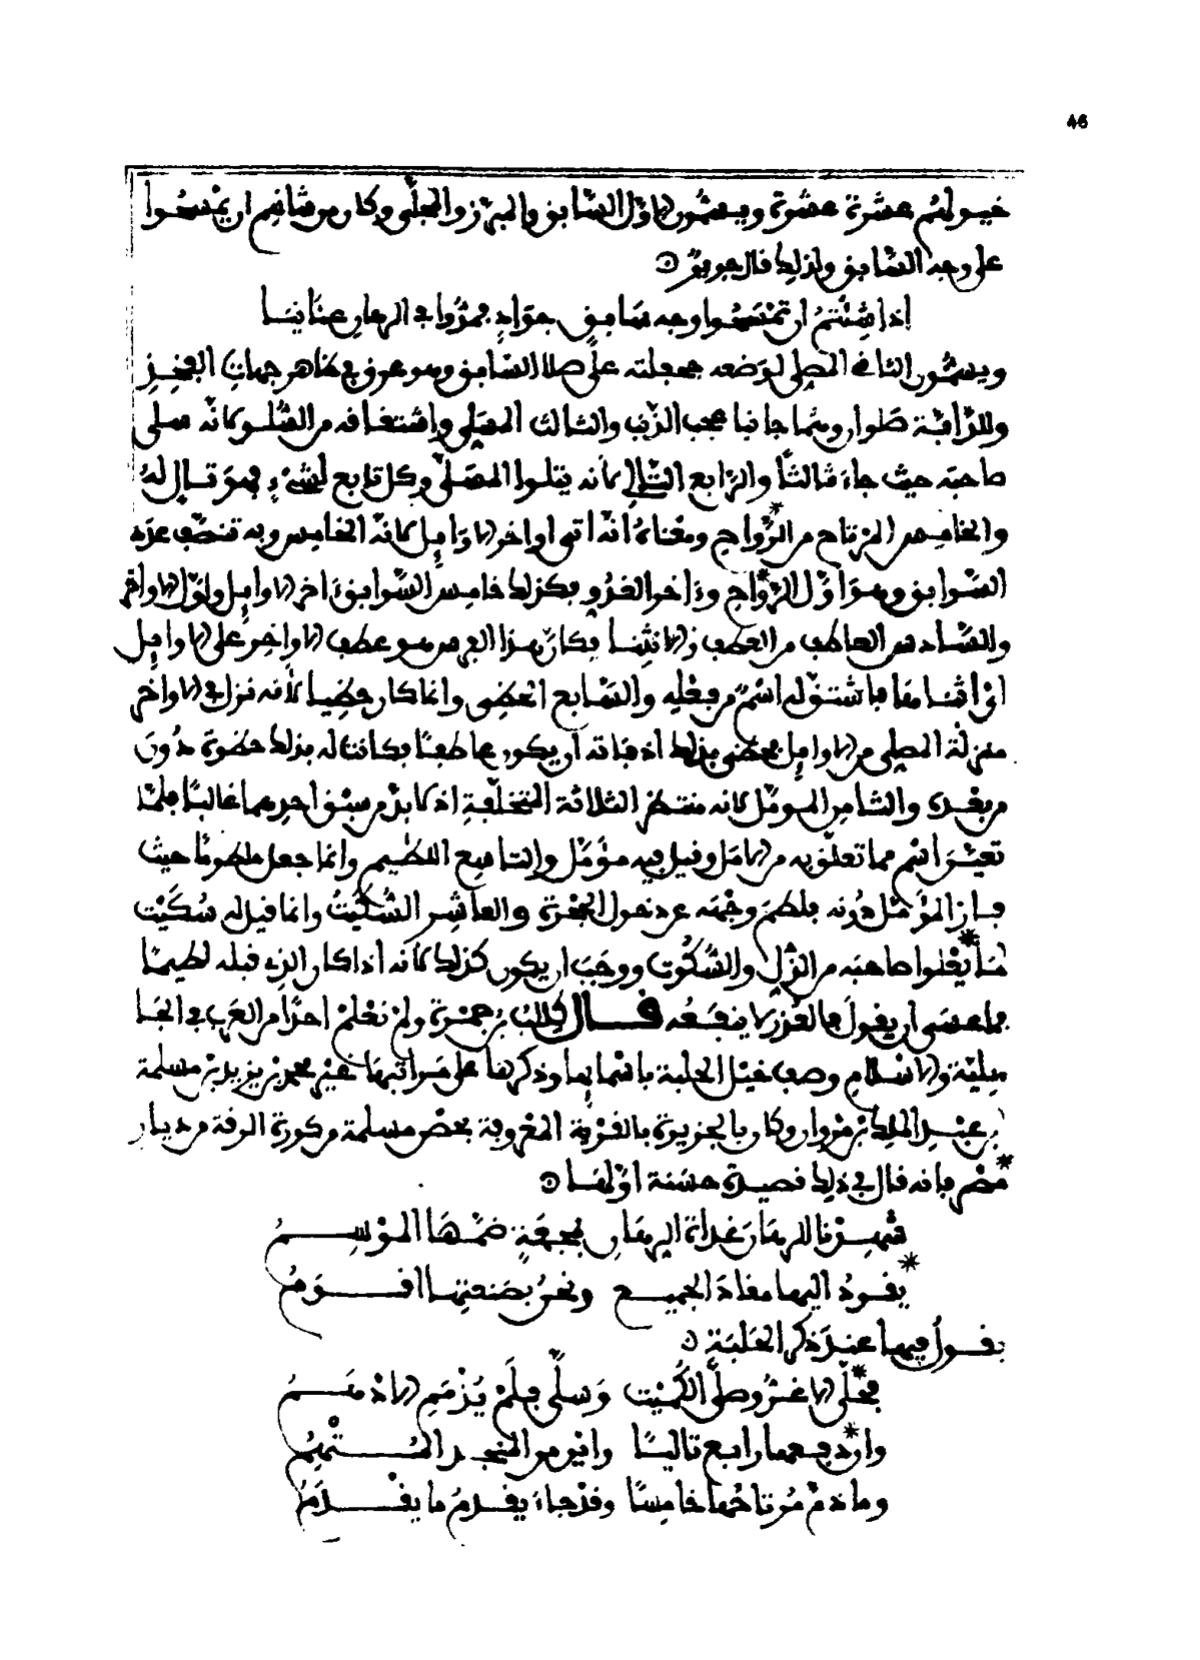 46
خيولهم عشرة عشرة ويسمون الاول السابق والمبرز والمجلى وكان من شانهم ان يمسحوا
على وجه السابق ولذلك قال جرير
اذا شئتم ان تمسحوا وجه سابق جواد فمدوا في الرهان عنانيا
ويسمون الثاني المصلي لوضعه جحفلته على صلا السابق وهو عرق في ظاهر جهات الفخذ
وللدابة صلوان وهما جانبا عجب الذنب والثالث المسلي واشتقاقه من السلو كانه سلى
صاحبه حيث جاء ثالثا والرابع التالي كانه يتلوا المصلي وكل تابع لشيء فهو تال له
والخامس المرتاح من الرواح ومعناه انه اتى اواخر الاوايل كانه الخامس وبه تنصف عدد
السوابق وهو اول الرواح واخر الغدو فكذلك خامس السوابق اخر الاوايل واول الاواخر
والسادس العاطف من العطف والانثنا فكان هذا الفرس عطف الاواخر على الاوايل
اي اثناها فاشتق له اسم من فعله والسابع الحظي وانما كان حظيا لانه نزل في الاواخر
منزلة المصلي من الاوايل فحظي بذلك اذ فاته ان يكون عاطفا فكانت له بذلك حظوة دون
من بعده والثامن المومل كانه منتظر الثلاثة المتخلفة اذ لا بد من سبق احدهما غالبا فلما
تعين اسم مما تعلق به من الامل وقيل فيه مؤمل والتاسع اللطيم وانما جعل ملطوما حيث
فاز المؤمل دونه فلطم وجهه عن دخول الحجرة والعاشر السكيت وانما قيل له سكيت
لما يعلوا صاحبه من الذل والسكوت ووجب ان يكون كذلك لانه اذا كان الذي قبله لطيما
فما عسى ان يقول فالعذر لا ينفعه قال كلاب بن حمزة ولم نعلم احدا من العرب في الجا
هلية والاسلام وصف خيل الحلبة باسمايها وذكرها على مراتبها غير محمد بن يزيد بن مسلمة
بن عبد الملك بن مروان وكان بالجزيرة بالقرية المعروفة بحصن مسلمة من كورة الرقة من ديار
مضر فانه قال في ذلك قصيدة حسنة اولها
شهدنا الرهان غداة الرهان بمجمعة ضمها الموسم
يقود اليها مقاد الجميع ونحن بصنعتها اقوم
يقول فيها عند ذكر الحلبة
فجلى الاغر وصلى الكميت وسلى فلم يذمم الادهم
واردفها رابع تاليا واين من المنجد المتهم
وما ذم مرتاحها خامسا وقد جاء يقدم ما يقدم